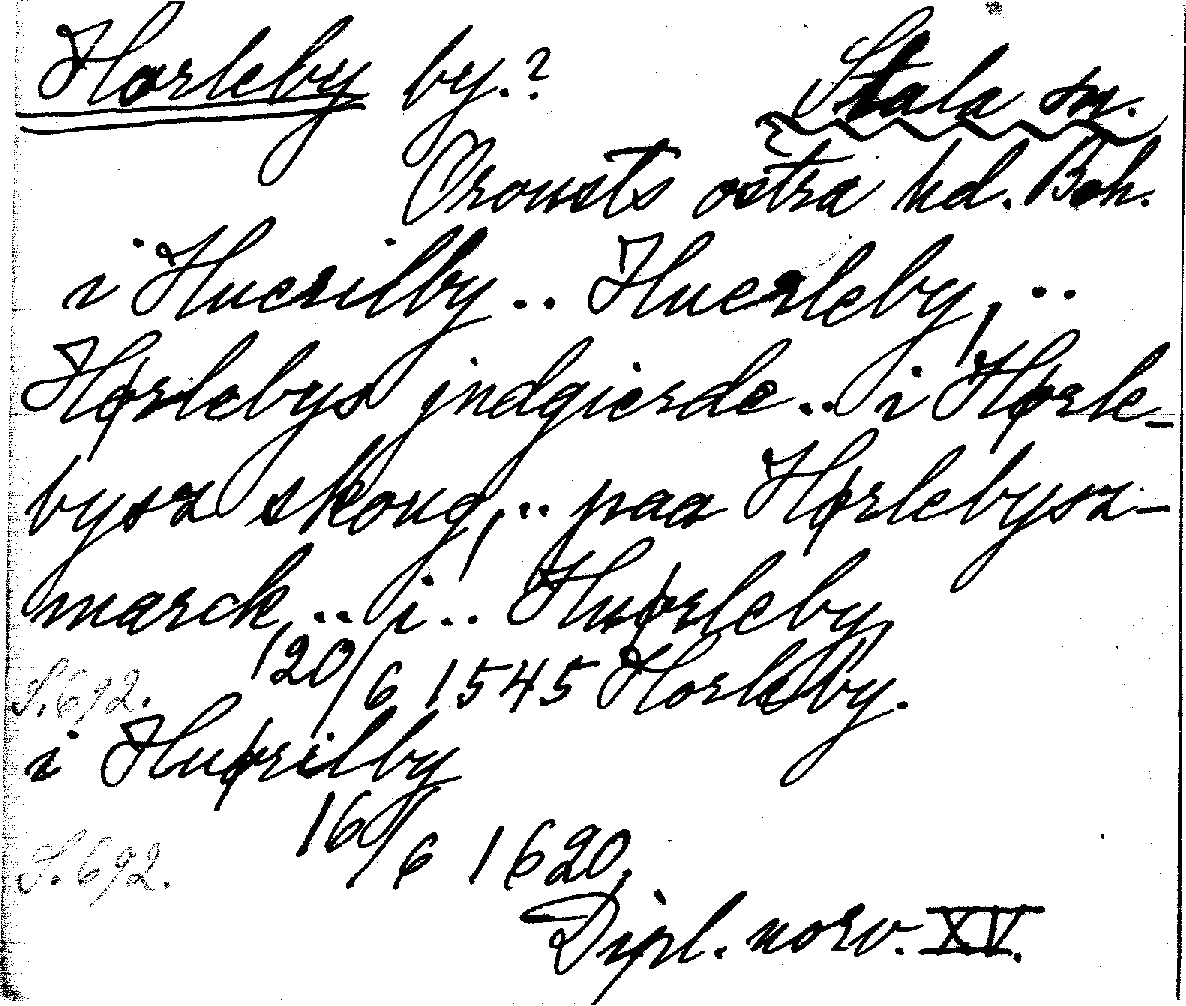 Horleby by.? Stala sn.
Orousts östra hd. Boh.
i Huerilby .. Huerleby, ..
Hørlebys jndgierde .. i Hørle-
bysz skoug, .. paa Hørlebysz-
marck .. i .. Huørleby,
S. 692. 20/6 1545 Horleby.
i Huørilby
16/6 1620,
S. 692.
Dipl. norv. XV.